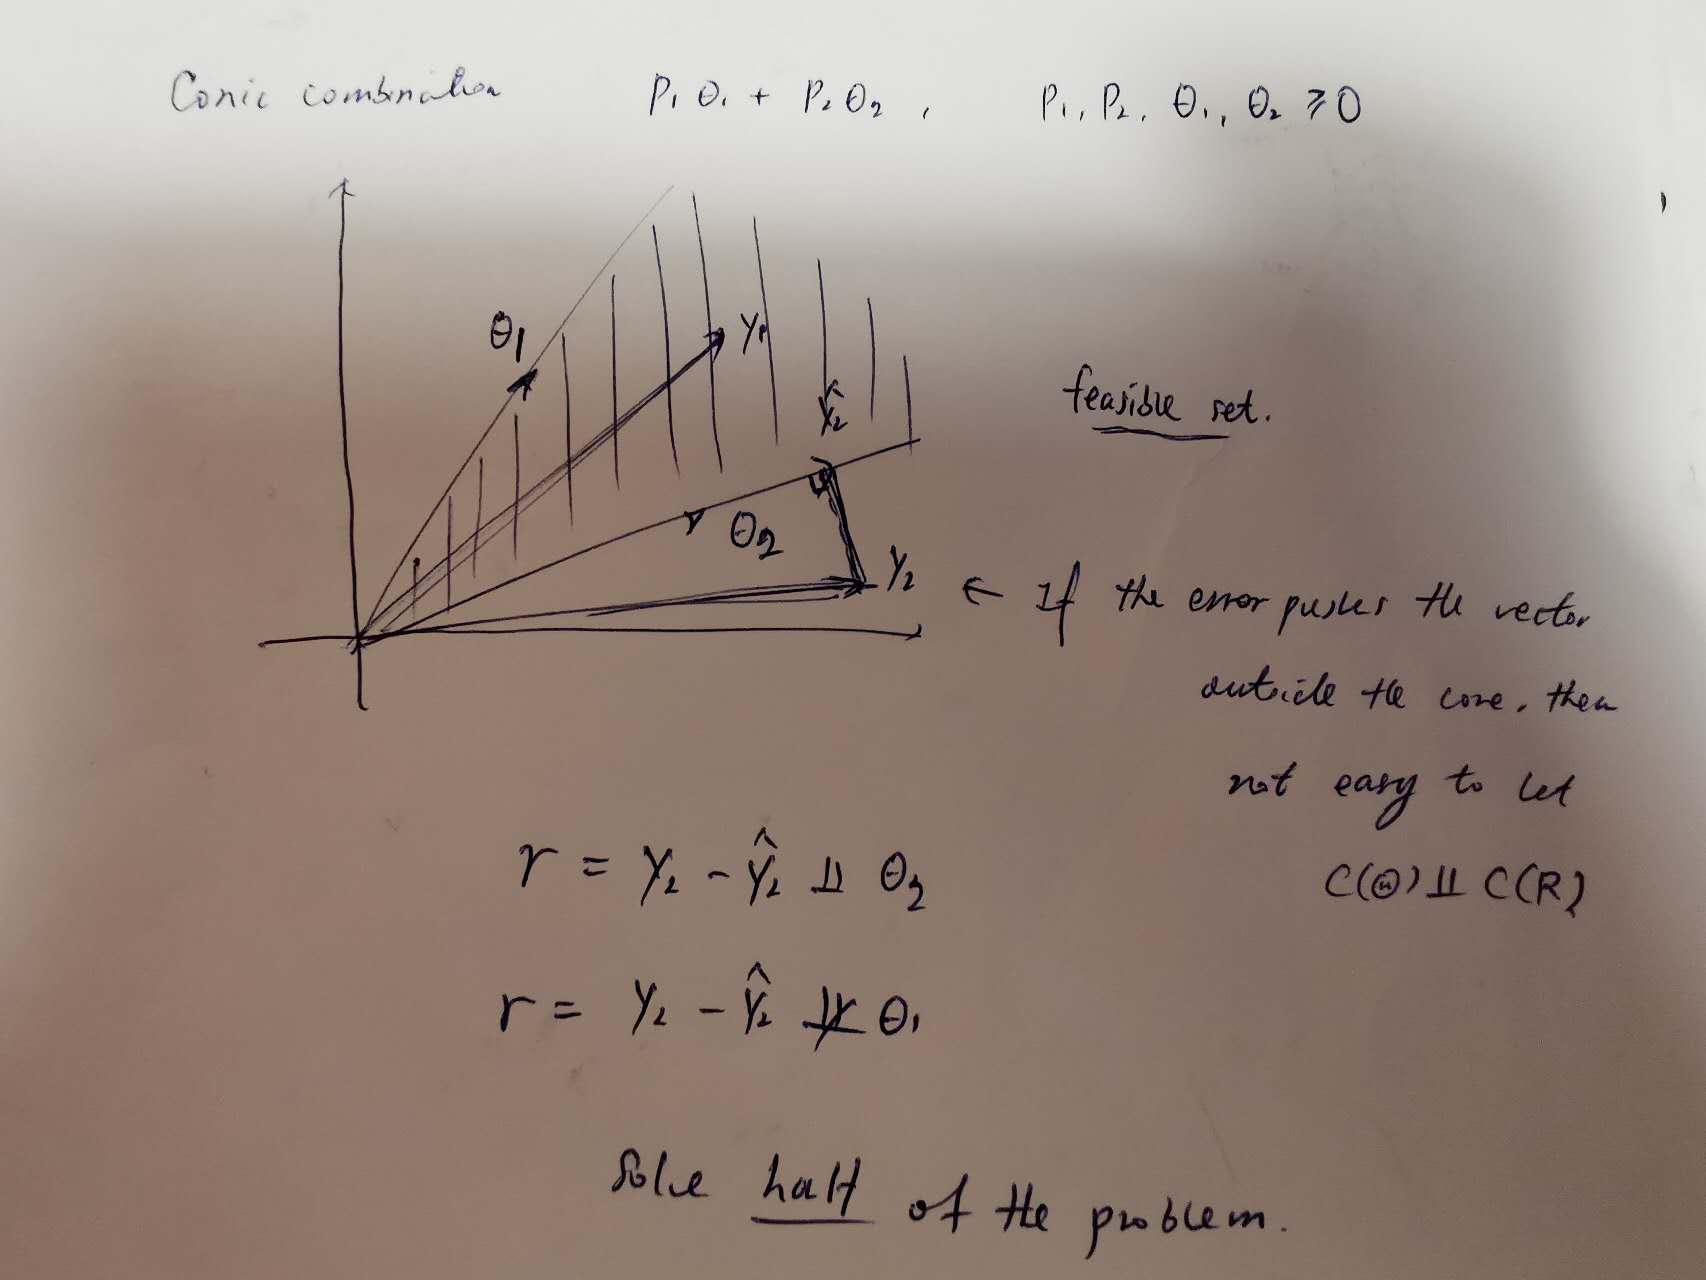 Conic combination P₁ θ₁ + P₂ θ₂ , P₁, P₂, θ₁, θ₂ ⩾ 0
θ₁
Y₁
Ŷ₂
feasible set.
θ₂
Y₂ ← If the error pushes the vector
outside the cone, then
not easy to let
r = Y₂ - Ŷ₂ ⫫ θ₂
C(Θ) ⫫ C(R)
r = Y₂ - Ŷ₂ ⫫̸ θ₁
Solve half of the problem.